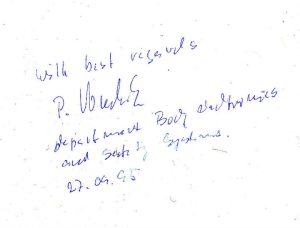 with best regards
P.
department Body electronics
and Safety Systems.
27.09.95